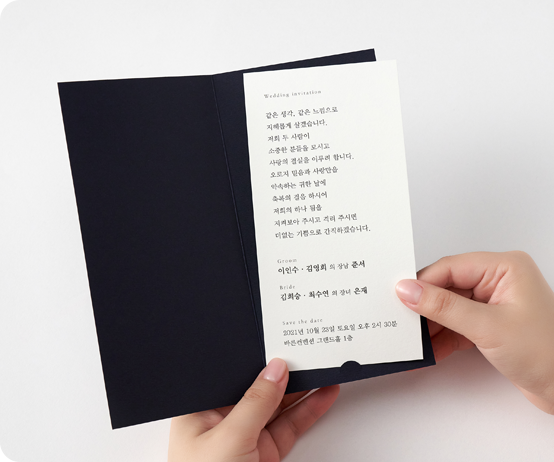 Wedding invitation
같은 생각, 같은 느낌으로
지혜롭게 살겠습니다.
저희 두 사람이
소중한 분들을 모시고
사랑의 결실을 이루려 합니다.
오로지 믿음과 사랑만을
약속하는 귀한 날에
축복의 걸음 하시어
저희의 하나 됨을
지켜보아 주시고 격려 주시면
더없는 기쁨으로 간직하겠습니다.
Groom
이인수 · 김영희 의 장남 준서
Bride
김희승 · 최수연 의 장녀 은재
Save the date
2021년 10월 23일 토요일 오후 2시 30분
바른컨벤션 그랜드홀 1층